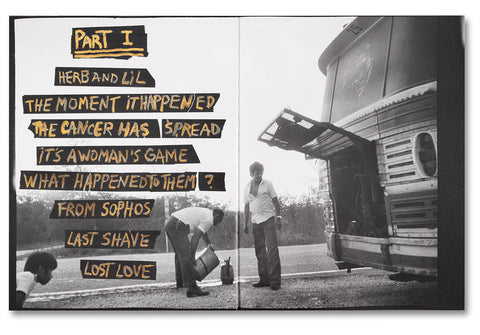 PART I
HERB AND LIL
THE MOMENT IT HAPPENED
THE CANCER HAS SPREAD
IT'S A WOMAN'S GAME
WHAT HAPPENED TO THEM ?
FROM SOPHOS
LAST SHAVE
LOST LOVE